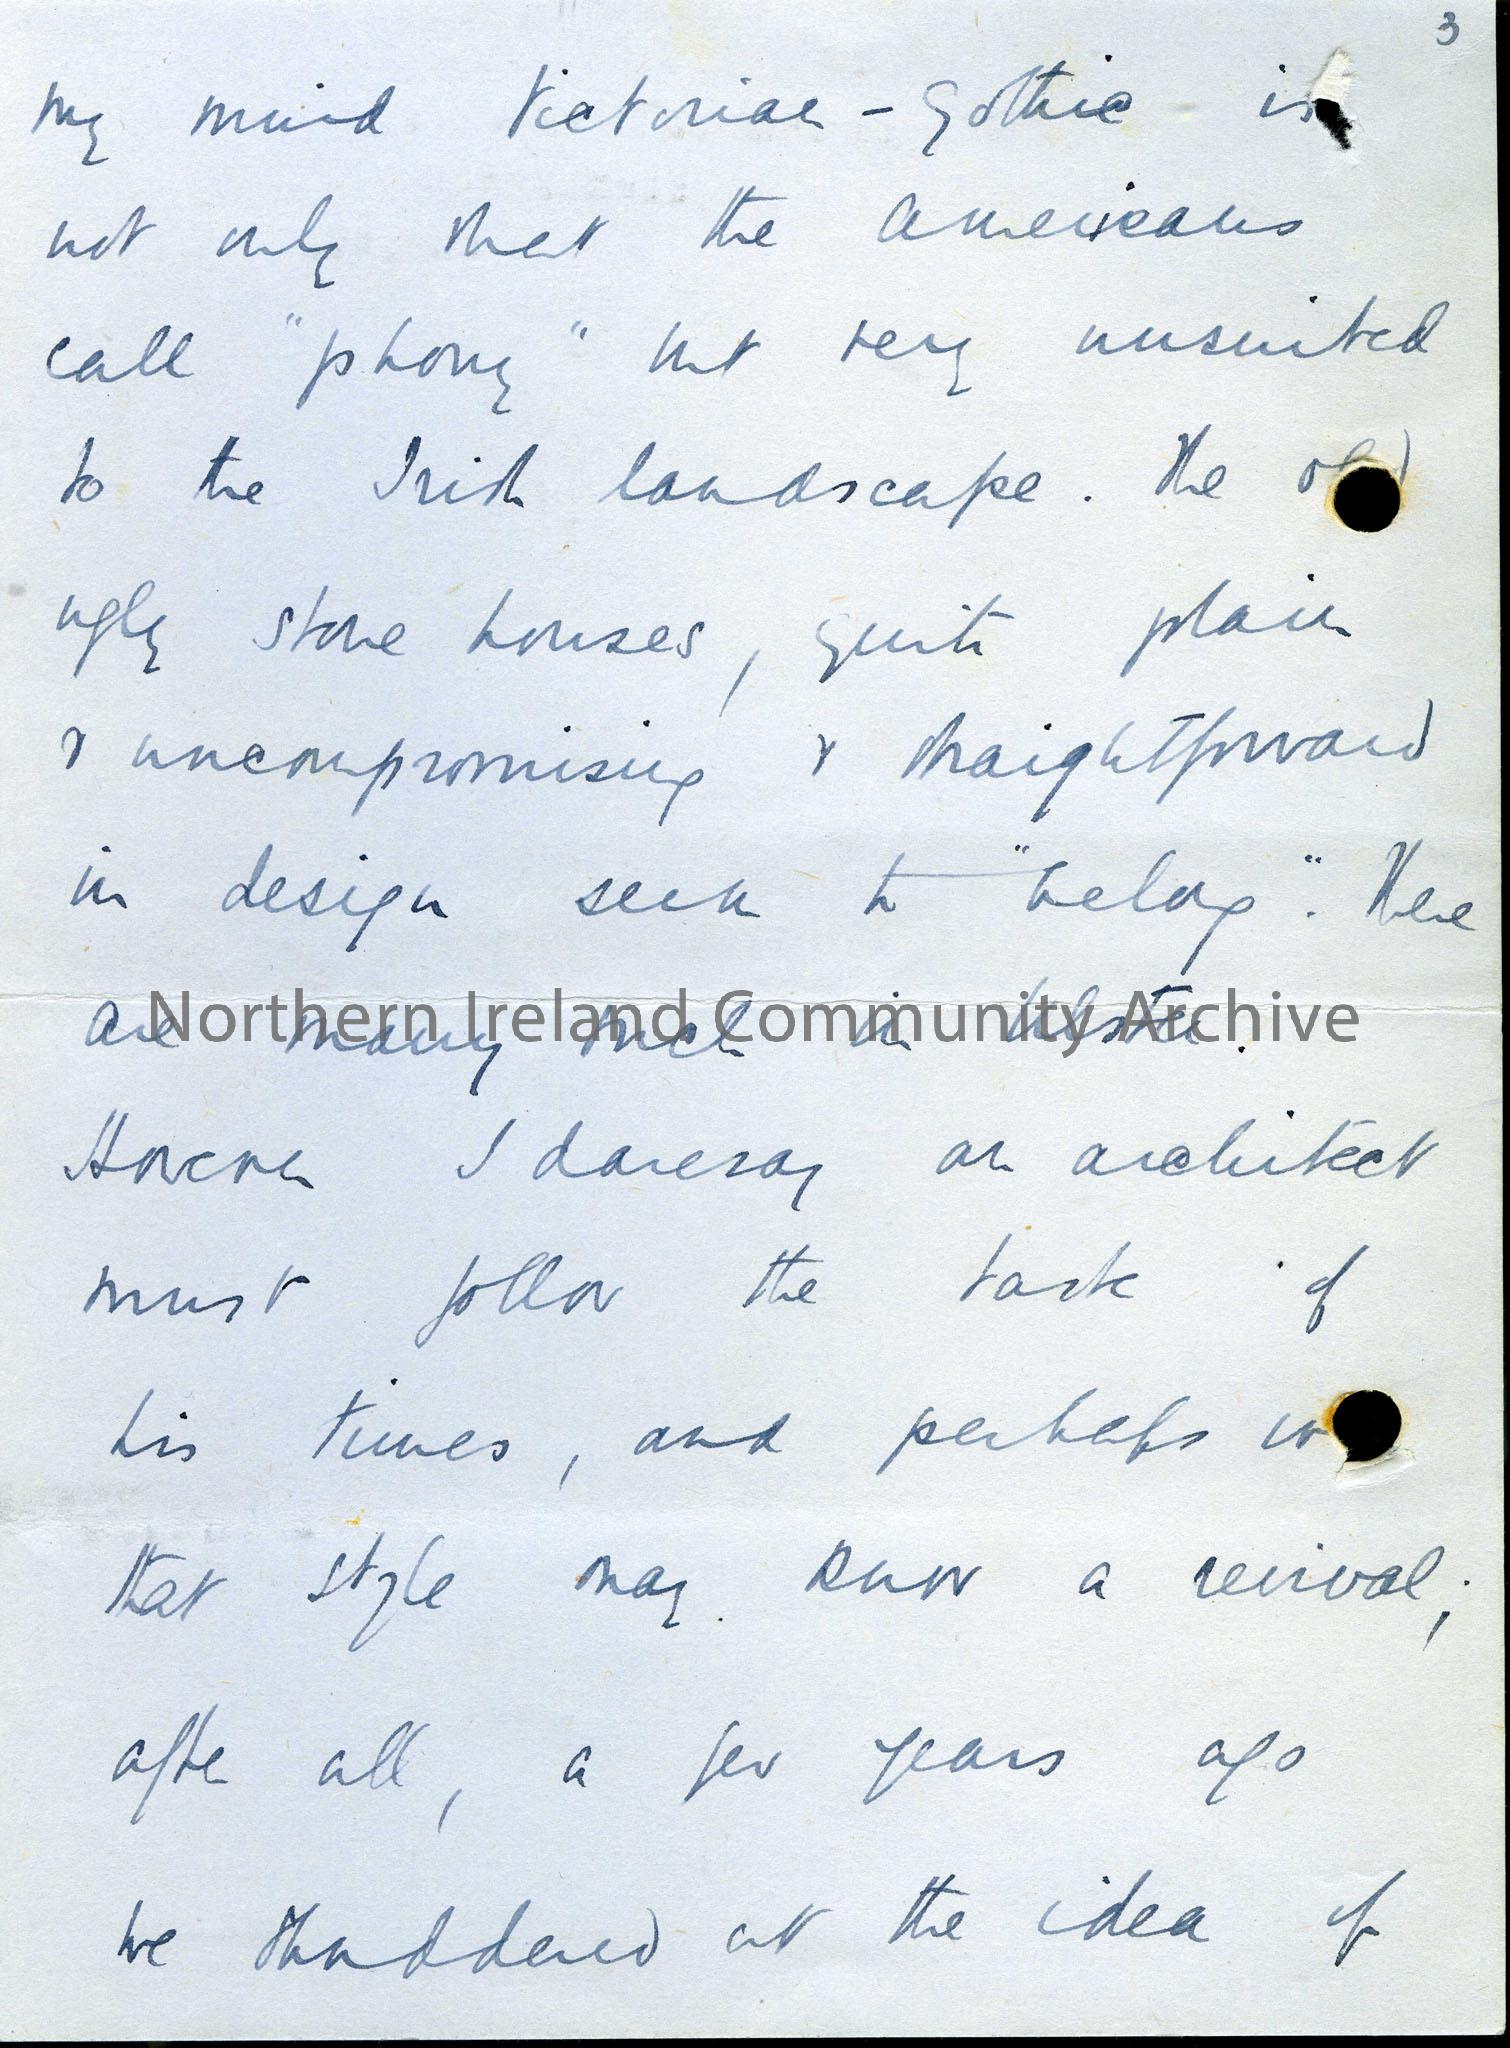 3
my mind Victorian - Gothic is
not only what the Americans
call "phony" but very unsuited
to the Irish landscape. The old
ugly stone houses, quite plain
& uncompromising & straightforward
in design seem to "belong". There
are many such in Ulster.
Northern Ireland Community Archive
However I daresay an architect
must follow the taste of
his times, and perhaps
that style may know a revival;
after all, a few years ago
we shuddered at the idea of